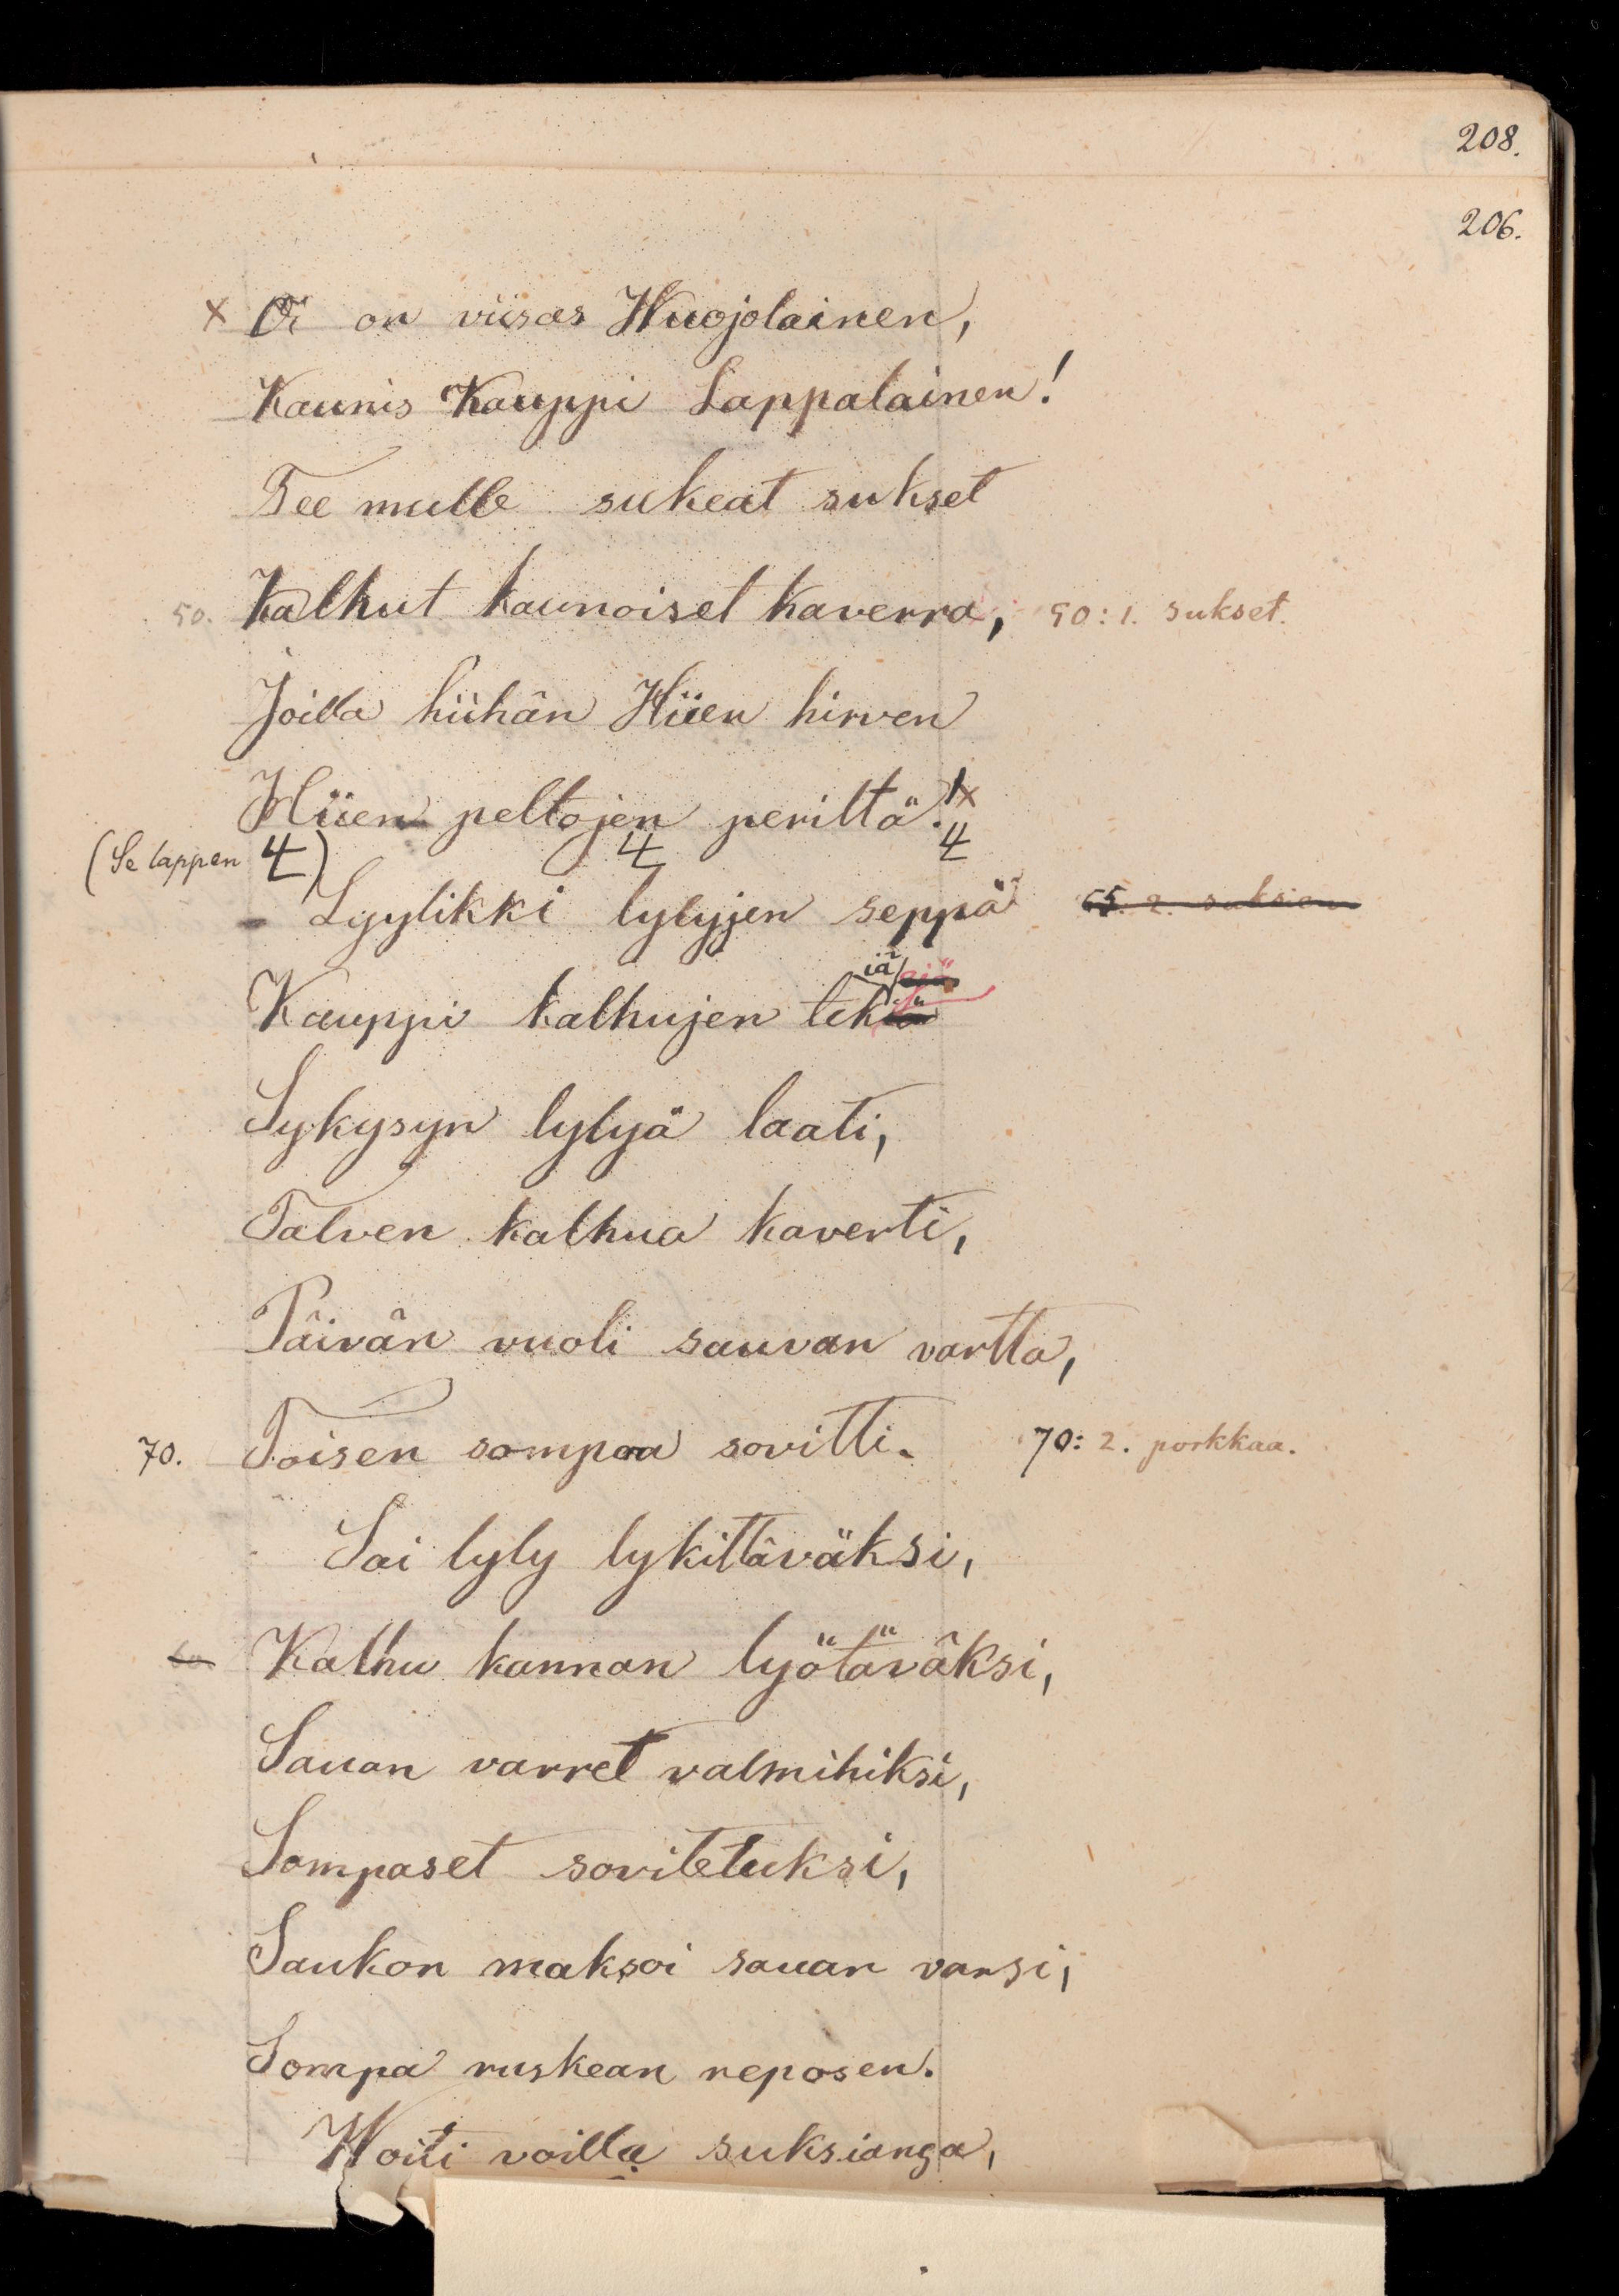 208.
206.
x Oi on viisas Wuojolainen,
Kaunis Kauppi Lappalainen!
Tee mulle sukeat sukset
50. Kalhut kaunoiset kaverra, 50: 1. sukset.
Joilla hiihän Hiien hirven
Hiien peltojen periltä! x
(Se lappen 4) 4 4
Lyylikki lylyjen seppä 65. 2. suksien
Kauppi kalhujen tekiä
Sykysyn lylyä laati,
Talven kalhua kaverti,
Päivän vuoli sauvan vartta,
70. Toisen sompoa sovitti. 70: 2. porkkaa.
Sai lyly lykittäväksi,
60 Kalhu kannan lyötäväksi,
Sauan varret valmihiksi,
Sompaset sovitetuksi,
Saukon maksoi sauan varsi,
Sompa ruskean reposen.
Woiti voilla suksianga,